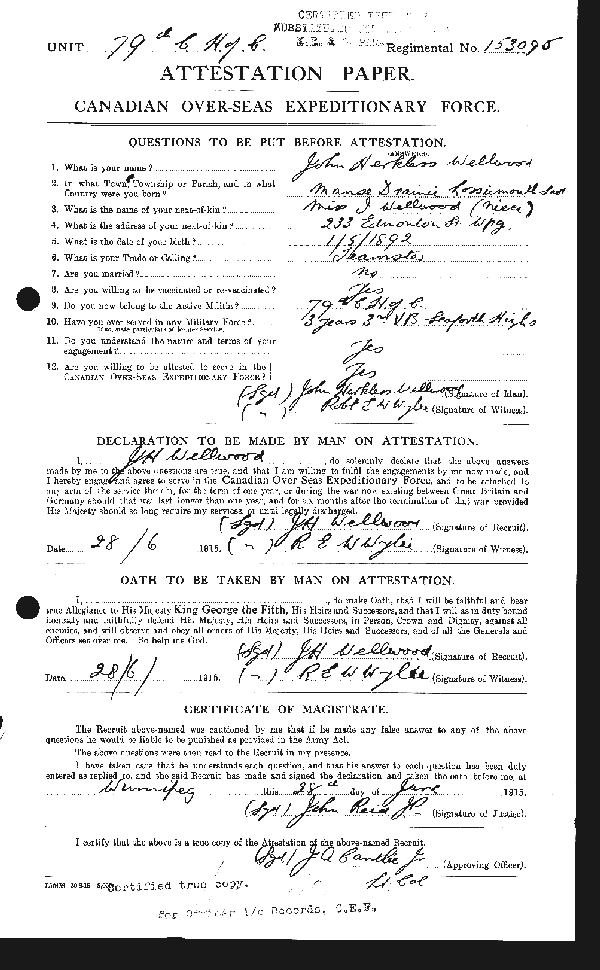 CERTIFIED
UNIT 79th C. H of C. Regimental No. 153095
ATTESTATION PAPER.
CANADIAN OVER-SEAS EXPEDITIONARY FORCE.
QUESTIONS TO BE PUT BEFORE ATTESTATION.
1. What is your name? John Herkless Wellwood
2. In what Town, Township or Parish, and in what Country were you born? Manse Drainie Lossiemouth
3. What is the name of your next-of-kin? Miss J Wellwood (Niece)
4. What is the address of your next-of-kin? 233 Edmonton St Wpg.
5. What is the date of your birth? 1/5/1892
6. What is your Trade or Calling? Teamster
7. Are you married? No
8. Are you willing to be vaccinated or re-vaccinated? Yes
9. Do you now belong to the Active Militia? 79th C H of C.
10. Have you ever served in any Military Force? 3 years 3rd VB Seaforth Highs
If so, state particulars of former Service.
11. Do you understand the nature and terms of your engagement? Yes
12. Are you willing to be attested to serve in the CANADIAN OVER-SEAS EXPEDITIONARY FORCE? Yes
(Sgd) John Herkless Wellwood (Signature of Man).
( " ) Robt E W Wylie (Signature of Witness).
DECLARATION TO BE MADE BY MAN ON ATTESTATION.
I, JH Wellwood, do solemnly declare that the above answers
made by me to the above questions are true, and that I am willing to fulfil the engagements by me now made, and
I hereby engage and agree to serve in the Canadian Over-Seas Expeditionary Force, and to be attached to
any arm of the service therein, for the term of one year, or during the war now existing between Great Britain and
Germany should that war last longer than one year, and for six months after the termination of that war provided
His Majesty should so long require my services, or until legally discharged.
(Sgd) JH Wellwood (Signature of Recruit).
Date 28/6 1915. ( " ) R E W Wylie (Signature of Witness).
OATH TO BE TAKEN BY MAN ON ATTESTATION.
I, , do make Oath, that I will be faithful and bear
true Allegiance to His Majesty King George the Fifth, His Heirs and Successors, and that I will as in duty bound
honestly and faithfully defend His Majesty, His Heirs and Successors, in Person, Crown and Dignity, against all
enemies, and will observe and obey all orders of His Majesty, His Heirs and Successors, and of all the Generals and
Officers set over me. So help me God.
(Sgd) JH Wellwood (Signature of Recruit).
Date 28/6/ 1915. ( " ) R E W Wylie (Signature of Witness).
CERTIFICATE OF MAGISTRATE.
The Recruit above-named was cautioned by me that if he made any false answer to any of the above
questions he would be liable to be punished as provided in the Army Act.
The above questions were then read to the Recruit in my presence.
I have taken care that he understands each question, and that his answer to each question has been duly
entered as replied to, and the said Recruit has made and signed the declaration and taken the oath before me, at
Winnipeg this 28th day of June 1915.
(Sgd) John Reid JP. (Signature of Justice).
I certify that the above is a true copy of the Attestation of the above-named Recruit.
(Sgd) J A Cantlie Jr. (Approving Officer).
Lt Col
Certified true copy.
For Officer i/c Records, C.E.F.